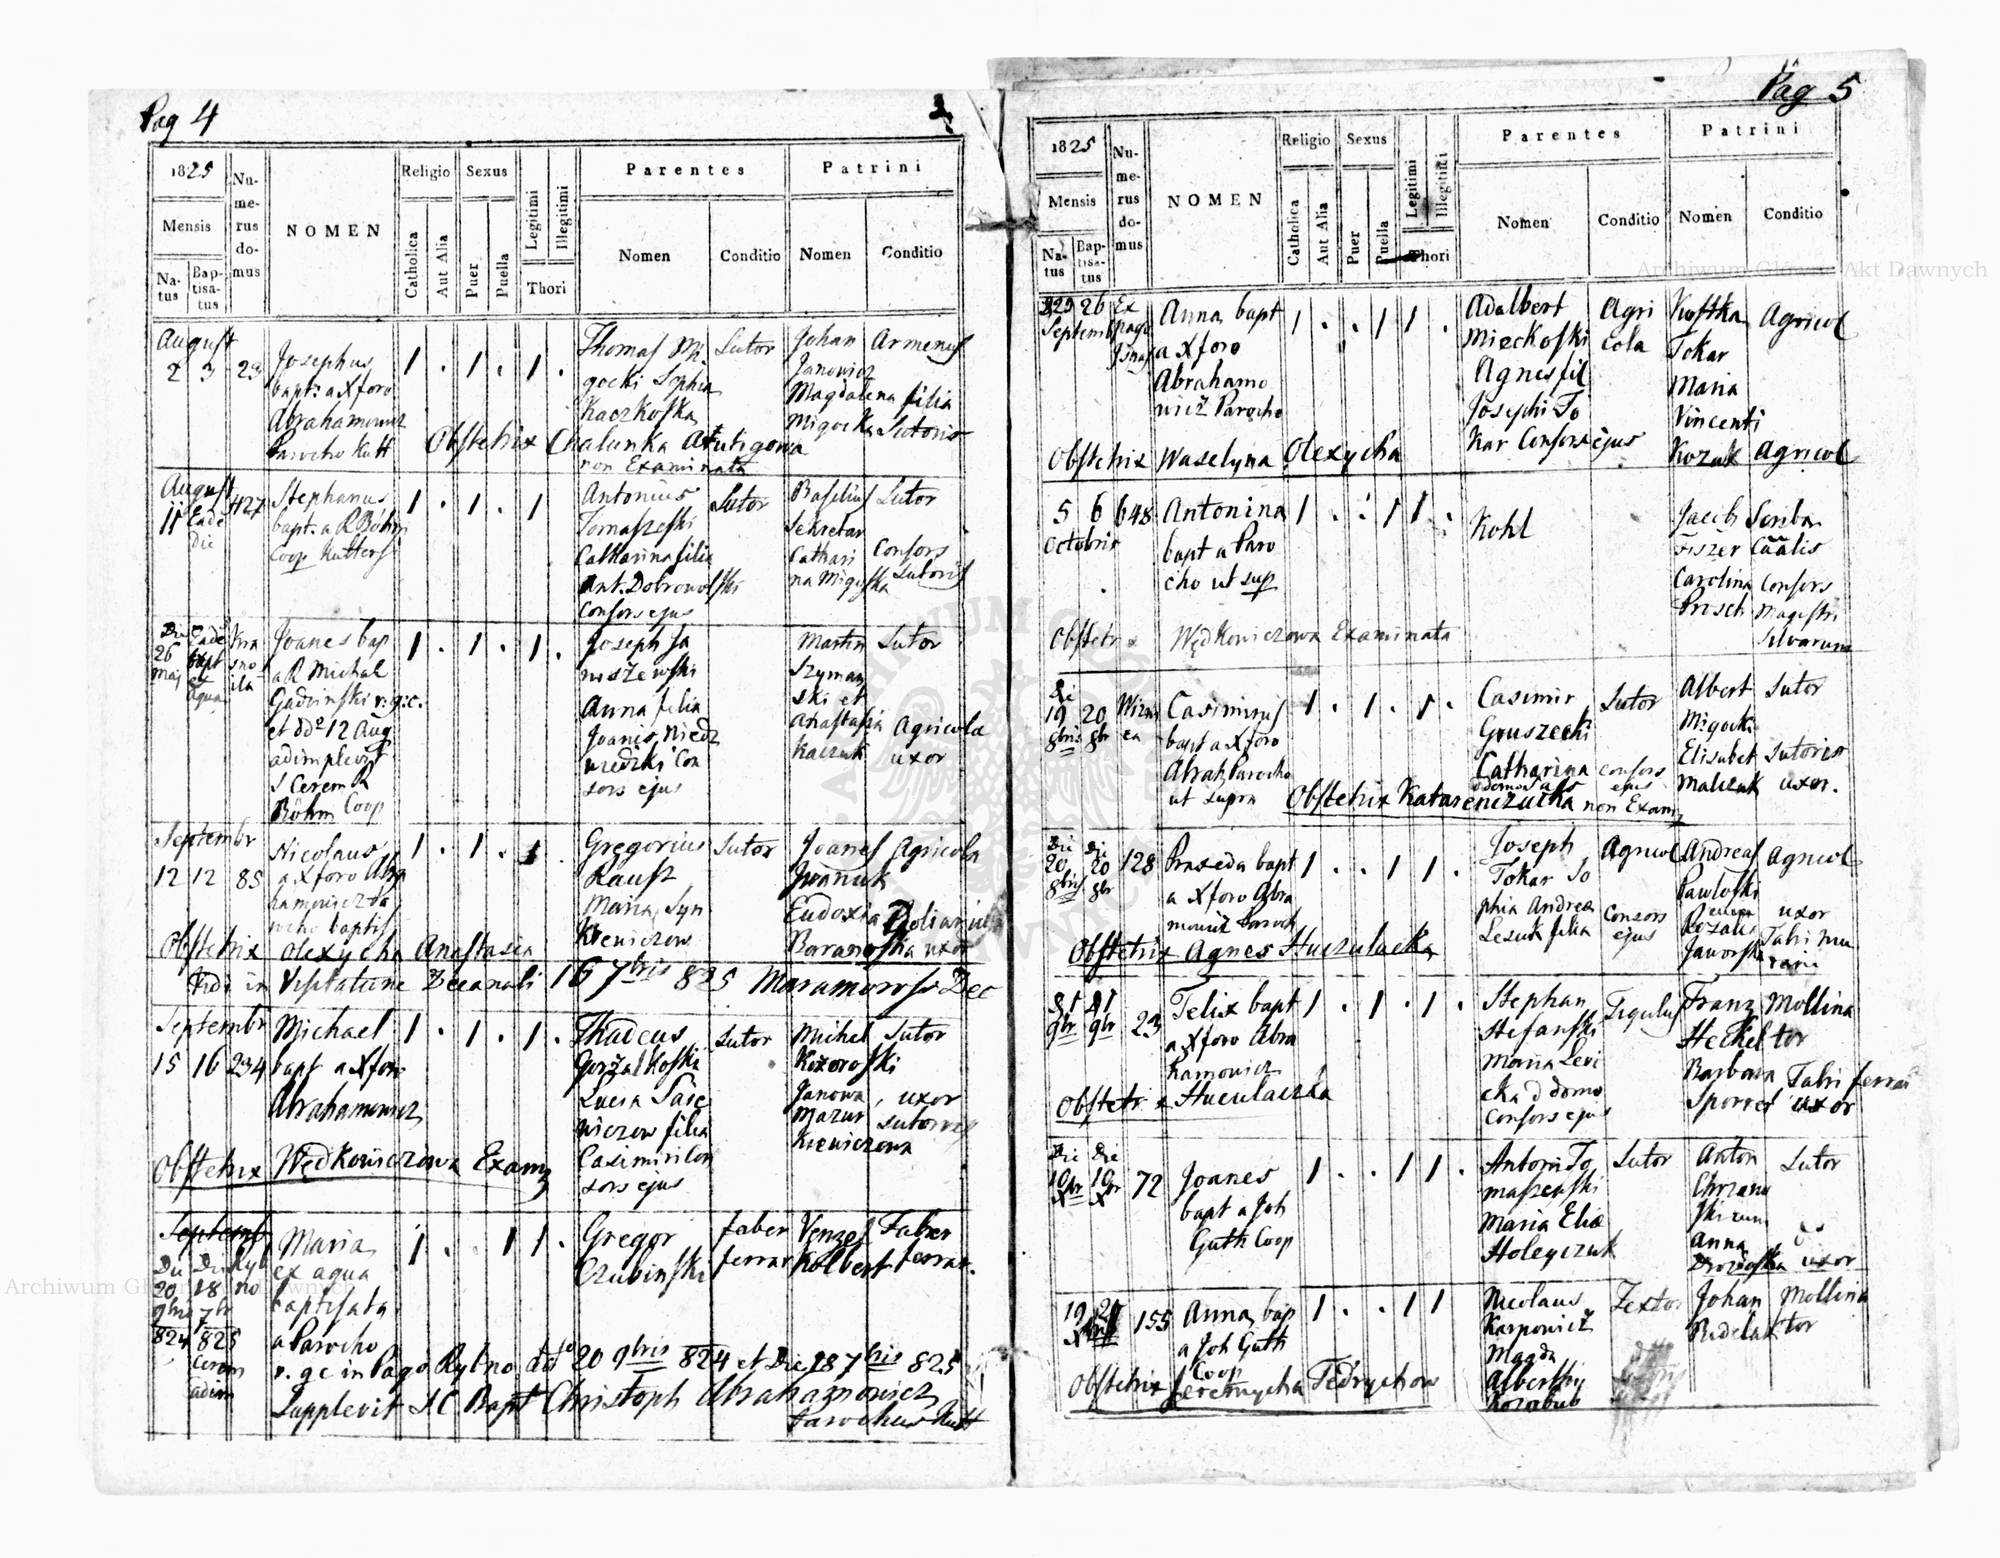 Pag 4
1825
Numerus domus
NOMEN
Religio
Sexus
Legitimi
Illegitimi
Thori
Parentes
Patrini
Mensis
Natus
Baptisatus
Catholica
Aut Alia
Puer
Puella
Nomen
Conditio
Nomen
Conditio
August
2 3 23 Josephus 1 . 1 . 1 . Thomas Mi Sutor Johan Armenus
gocki Sophia Janowicz
bapt: a Xforo Kaczkoska Magdalena filia
Abrahamowicz Migocka Sutoris
Parocho Kutt Obstetrix Chalunka
non Examinata
August
11 Eade Die 427 Stephanus 1 . 1 . 1 Antonius Sutor Basilius Sutor
bapt. a R Böhm Tomaszeski Sekretar
Coop Kuttens Catharina filia Cathari Consors
Ant. Dobrowolski na Migoska Sutoris
consors ejus
Die 26 Maj Eade bapt ex aqua Krasnoila Joanes bap 1 . 1 . 1 . Joseph Ja Martin Sutor
a R Michal niszewski Szyman
Gadzinski r.g.c. Anna filia ski et
et dd° 12 Aug Joanis Niedz Anastasia Agricola
adimplevit wiedzki Con Kaczuk uxor
S Cerem R sors ejus
Böhm Coop
Septembr
12 12 85 Nicolaus 1 . 1 . 1 . Gregorius Sutor Joanes Agricola
a Xforo Abra Raust Iwaniuk
hamowicz Pa Maria Syn Eudoxia Doliarius
rocho baptis Kiewiczow Baranoska uxor
Obstetrix Olexycha Anastasia
Vidi in Visitatione Decanali 16 7bris 825 Maramorosz Dec
Septembr
15 16 234 Michael 1 . 1 . 1 . Thadeus Sutor Michal Sutor
bapt a Xforo Gorzalkoski Kozoroski
Abrahamowicz Lucia Janowa uxor
wiczow filia Mazur Sutoris
Casimiri Con Kiewiczowa
sors ejus
Obstetrix Wędkowiczowa Exam
Septemb
Die 20 9bris 824 Die 18 7br 825 Cerem adim Rybno Maria 1 . . 1 1 . Gregor faber Venzel Faber
ex aqua Czubinski ferrar Kolbert ferrar.
baptisata
a Parocho
r. g c in Pago Rybno dd° 20 9bris 824 et Die 18 7bris 825
Supplevit S C Bapt Christoph Abrahamowicz
Parochus Kutt
Pag 5
1825
Numerus domus
NOMEN
Religio
Sexus
Legitimi
Illegitimi
Thori
Parentes
Patrini
Mensis
Natus
Baptisatus
Catholica
Aut Alia
Puer
Puella
Nomen
Conditio
Nomen
Conditio
25 26 Septemb Ex pago Anna bapt 1 . . 1 1 . Adalbert Agri Kostka Agricol
a Xforo Mieckoski cola Tokar
Abrahamo Agnes fil Maria
wicz Parocho Josephi To Vincenti
kar Consors ejus Kozak Agricol
Obstetrix Waselyna Olexycha
5 6 Octobris 648 Antonina 1 . . 1 1 . Kohl Jacob Scriba
bapt a Paro Fiszer Caālis
cho ut sup Carolina Consors
Prosch Magistri
Silvarum
Obstetrix Wędkowiczowa Examinata
Die 19 8bris 20 8br Casimirus 1 . 1 . 1 . Casimir Sutor Albert Sutor
bapt a Xforo Gruszecki Migocki
Abrah Parocho Catharina consors ejus Elisabet Sutoris
ut supra Malczuk uxor.
Obstetrix Katarenczuczka non Exam
Die 20 8bris Die 20 8br 128 Praxeda bapt 1 . . 1 1 . Joseph Agricol Andreas Agricol
a Xforo Abra Tokar So Pawloski
mowicz Paroch phia Andrea Consors Rozalia uxor
Lesuk filia ejus Jaworska Fabri
Obstetrix Agnes Huculaczka
9br 9br 23 Felix bapt 1 . 1 . 1 . Stephan Figulus Franz Mollina
a Xforo Abra Stefanski Steckel tor
hamowicz Maria Levi Barbara Fabri ferrar
cka d domo Sporrer uxor
Consors ejus
Obstetrix Huculaczka
Die 19 Xbr Die 19 Xbr 72 Joanes 1 . . 1 1 . Antoni To Sutor Anton Sutor
bapt a Joh maszewski Chrzanow
Guth Coop Maria Elia
Holeyczuk Anna
uxor
19 155 Anna bap 1 . . 1 1 Nicolaus Textor Johan Mollina
a Joh Guth Karpowicz Ridela tor
Coop Magda
Alberthy
Korabub
Obstetrix Jeremycha Fedrychow
Archiwum Główne Akt Dawnych
Archiwum Główne Akt Dawnych